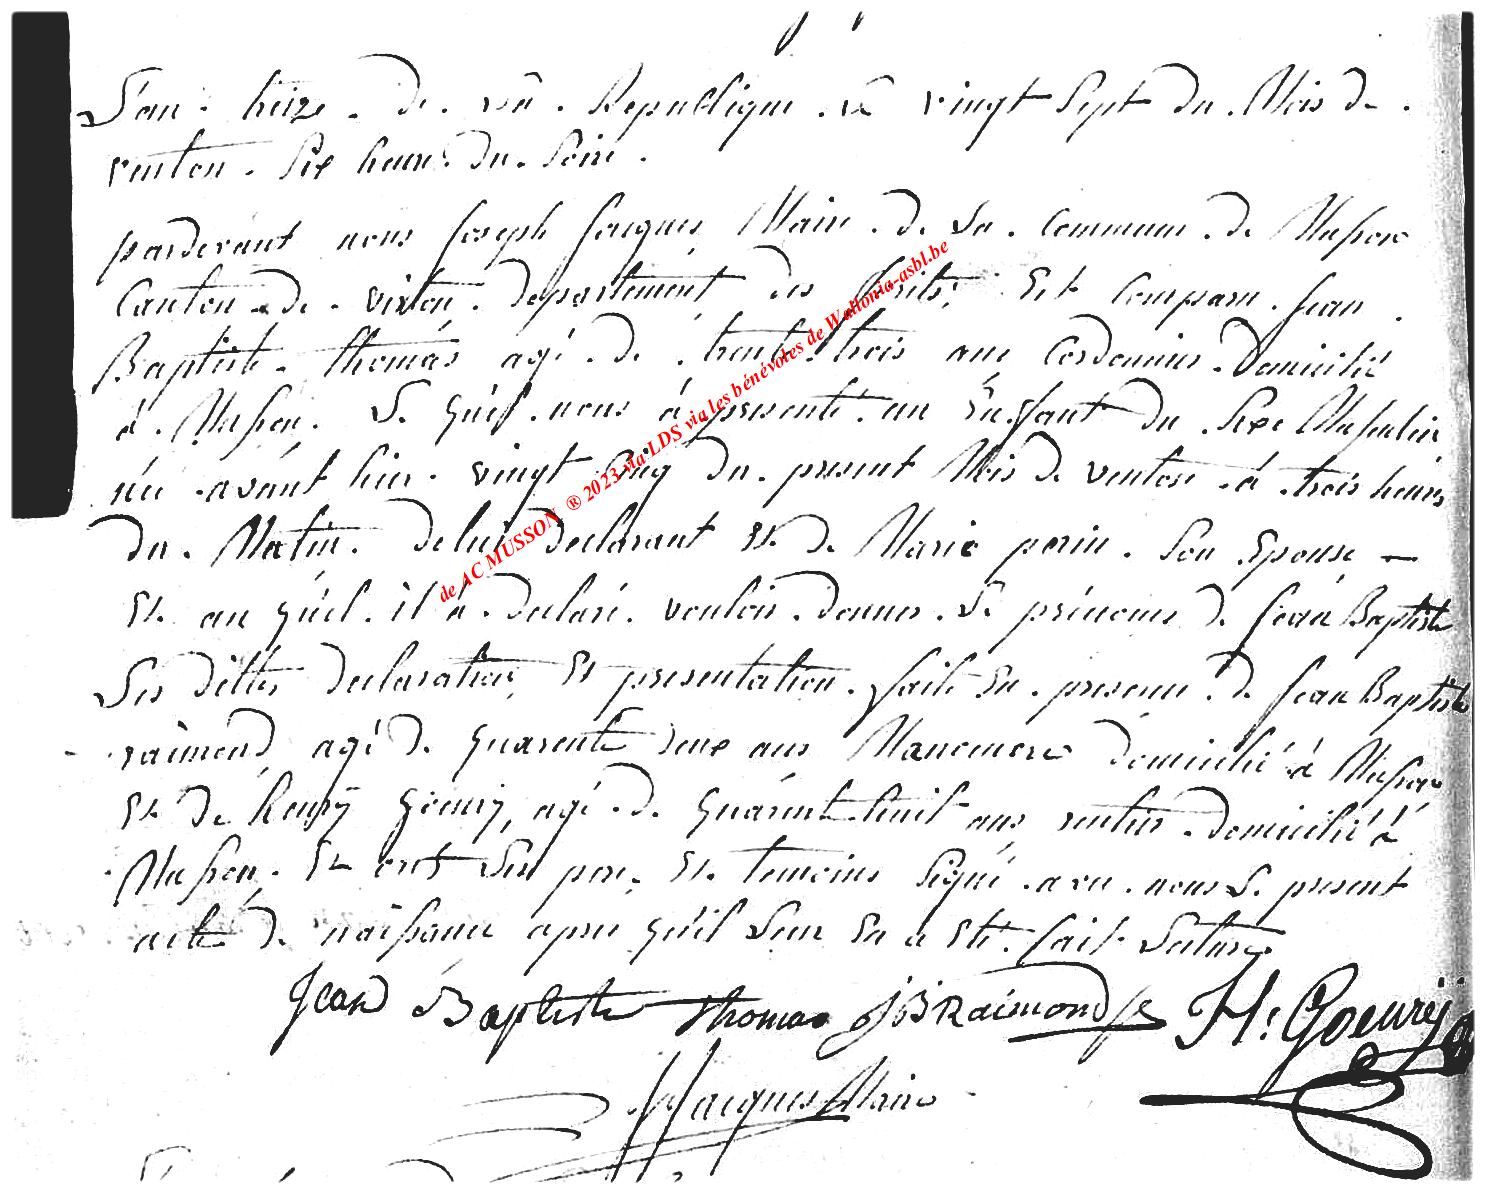 L'an treize de La Republique Le vingt Sept du Mois de
ventos Six heures du Soire
pardevant nous Joseph Jacques Maire de La Commune de Musson
Canton de virton departement des forêts, Est Comparu Jean
Baptiste thomas agé de trente trois ans Cordonnier Domicilié
à Musson. Le quel nous à presenté un Enffant du Sexe Masculin
née avant hier vingt Cinq du present Mois de ventose à trois heures
du Matin. de lui declarant Et de Marie perin Son Epouse —
Et au quel il à declaré vouloir donner Le prénoms de Jean Baptiste
Les dittes declaration Et presentation faite En presence de Jean Baptiste
raimond agé de quarente deux ans Maneuvre domicilié à Musson
Et de henry goeury, agé de quarente huit ans rentier domicilié à
Musson. Et ont Les pere Et temoins Signé avec nous Le present
acte de naissance apres qu'il Leur En a Eté fait Lecture
Jean Baptiste thomas JB Raimond H: Goeurÿ
JJacques Maire
de AC MUSSON ® 2023 via LDS via les bénévoles de Wallonia-asbl.be